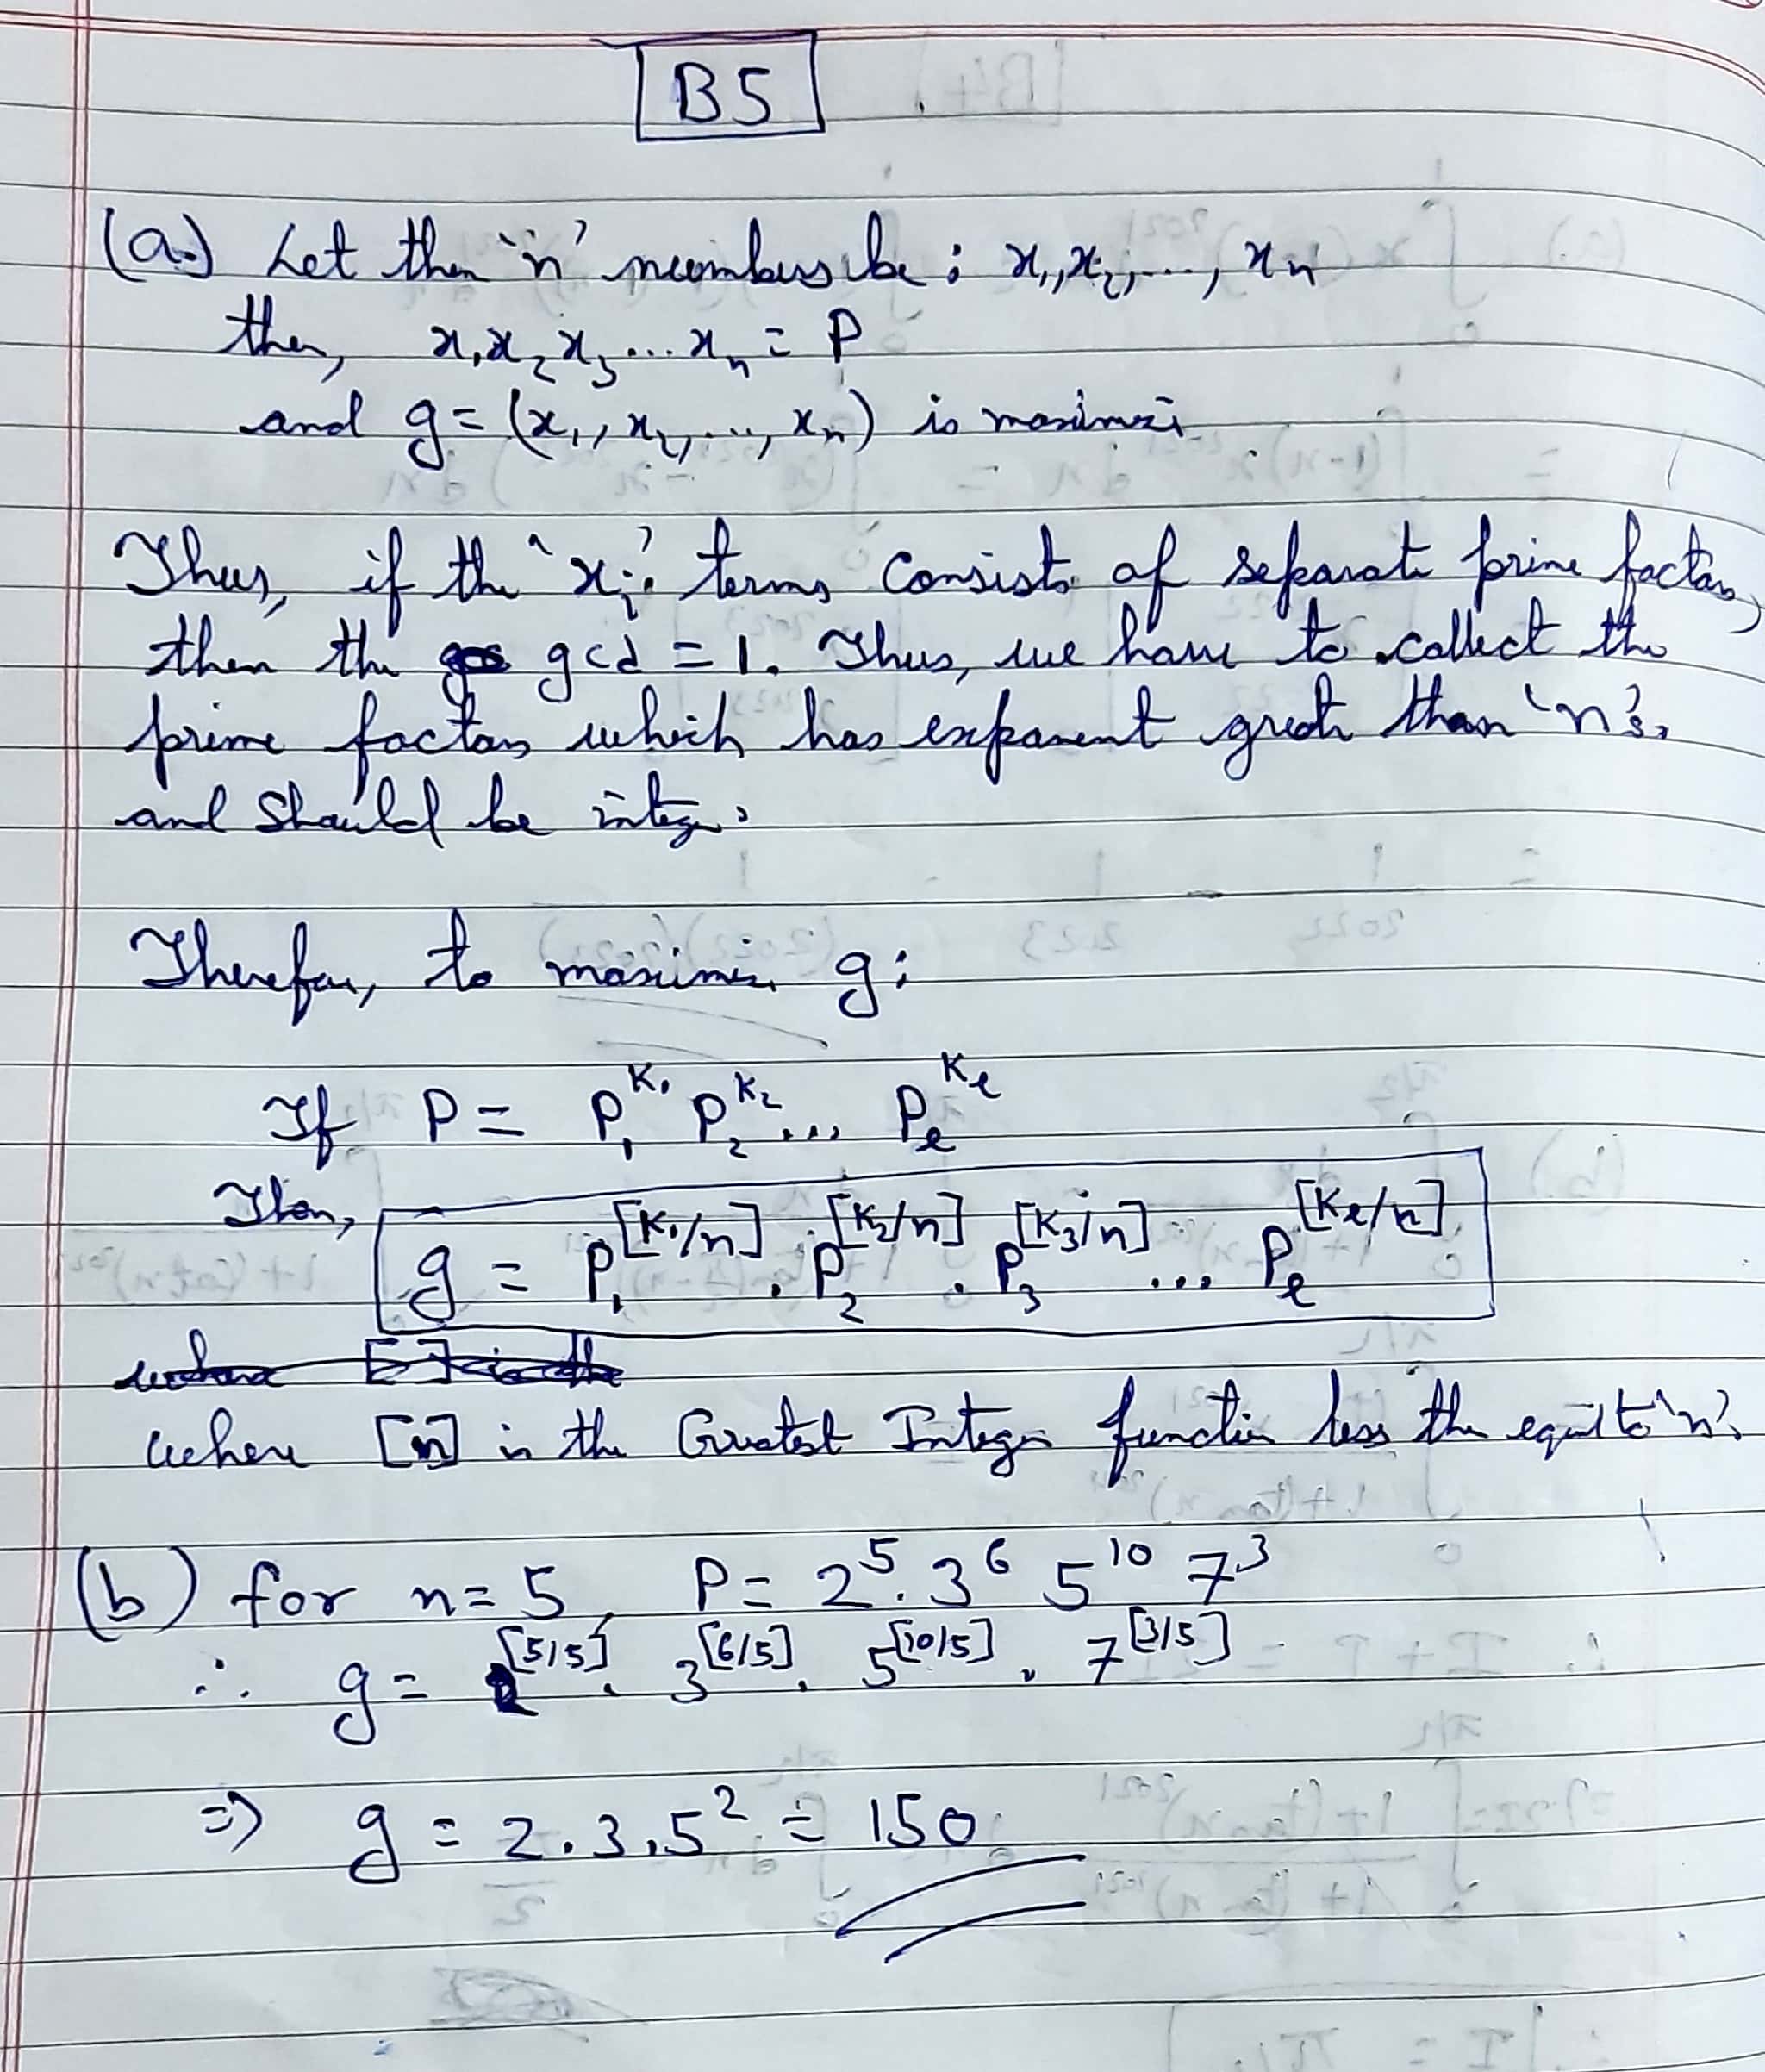 B5
(a.) Let then 'n' numbers be : x₁, x₂, ..., xₙ
then, x₁x₂x₃...xₙ = P
and g = (x₁, x₂, ..., xₙ) is maximi
Thus, if the 'xᵢ' terms consists of separate prime factors,
then the gcd = 1. Thus, we have to collect the
prime factors which has exponent great than 'n's.
and should be integer.
Therefore, to maximize g:
If P = p₁^K₁ p₂^K₂ ... pₑ^Kₑ
Then, g = p₁^[K₁/n] . p₂^[K₂/n] . p₃^[K₃/n] ... pₑ^[Kₑ/n]
where [n] is the Greatest Integer function less the equal to 'n'.
(b) for n = 5, P = 2⁵ . 3⁶ 5¹⁰ 7³
∴ g = 2^[5/5] . 3^[6/5] . 5^[10/5] . 7^[3/5]
⇒ g = 2.3.5² = 150